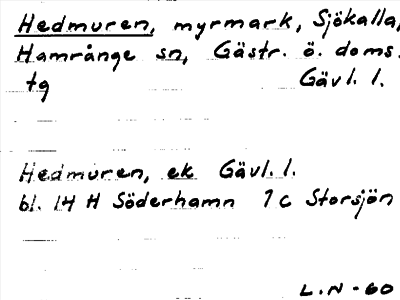 Hedmuren, myrmark, Sjökalla,
Hamrånge sn, Gästr. ö. doms.
tg Gävl. l.
Hedmuren, ek Gävl. l.
bl. 14 H Söderhamn 7 c Storsjön
L.N - 60